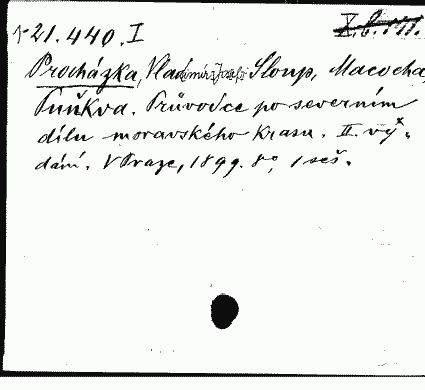 1-21.440.I X.b.111.
Procházka, Vladimír Josef: Sloup, Macocha,
Puňkva. Průvodce po severním
dílu moravského krasu. II. vy-
dání. V Praze, 1899. 8°, 1 seš.